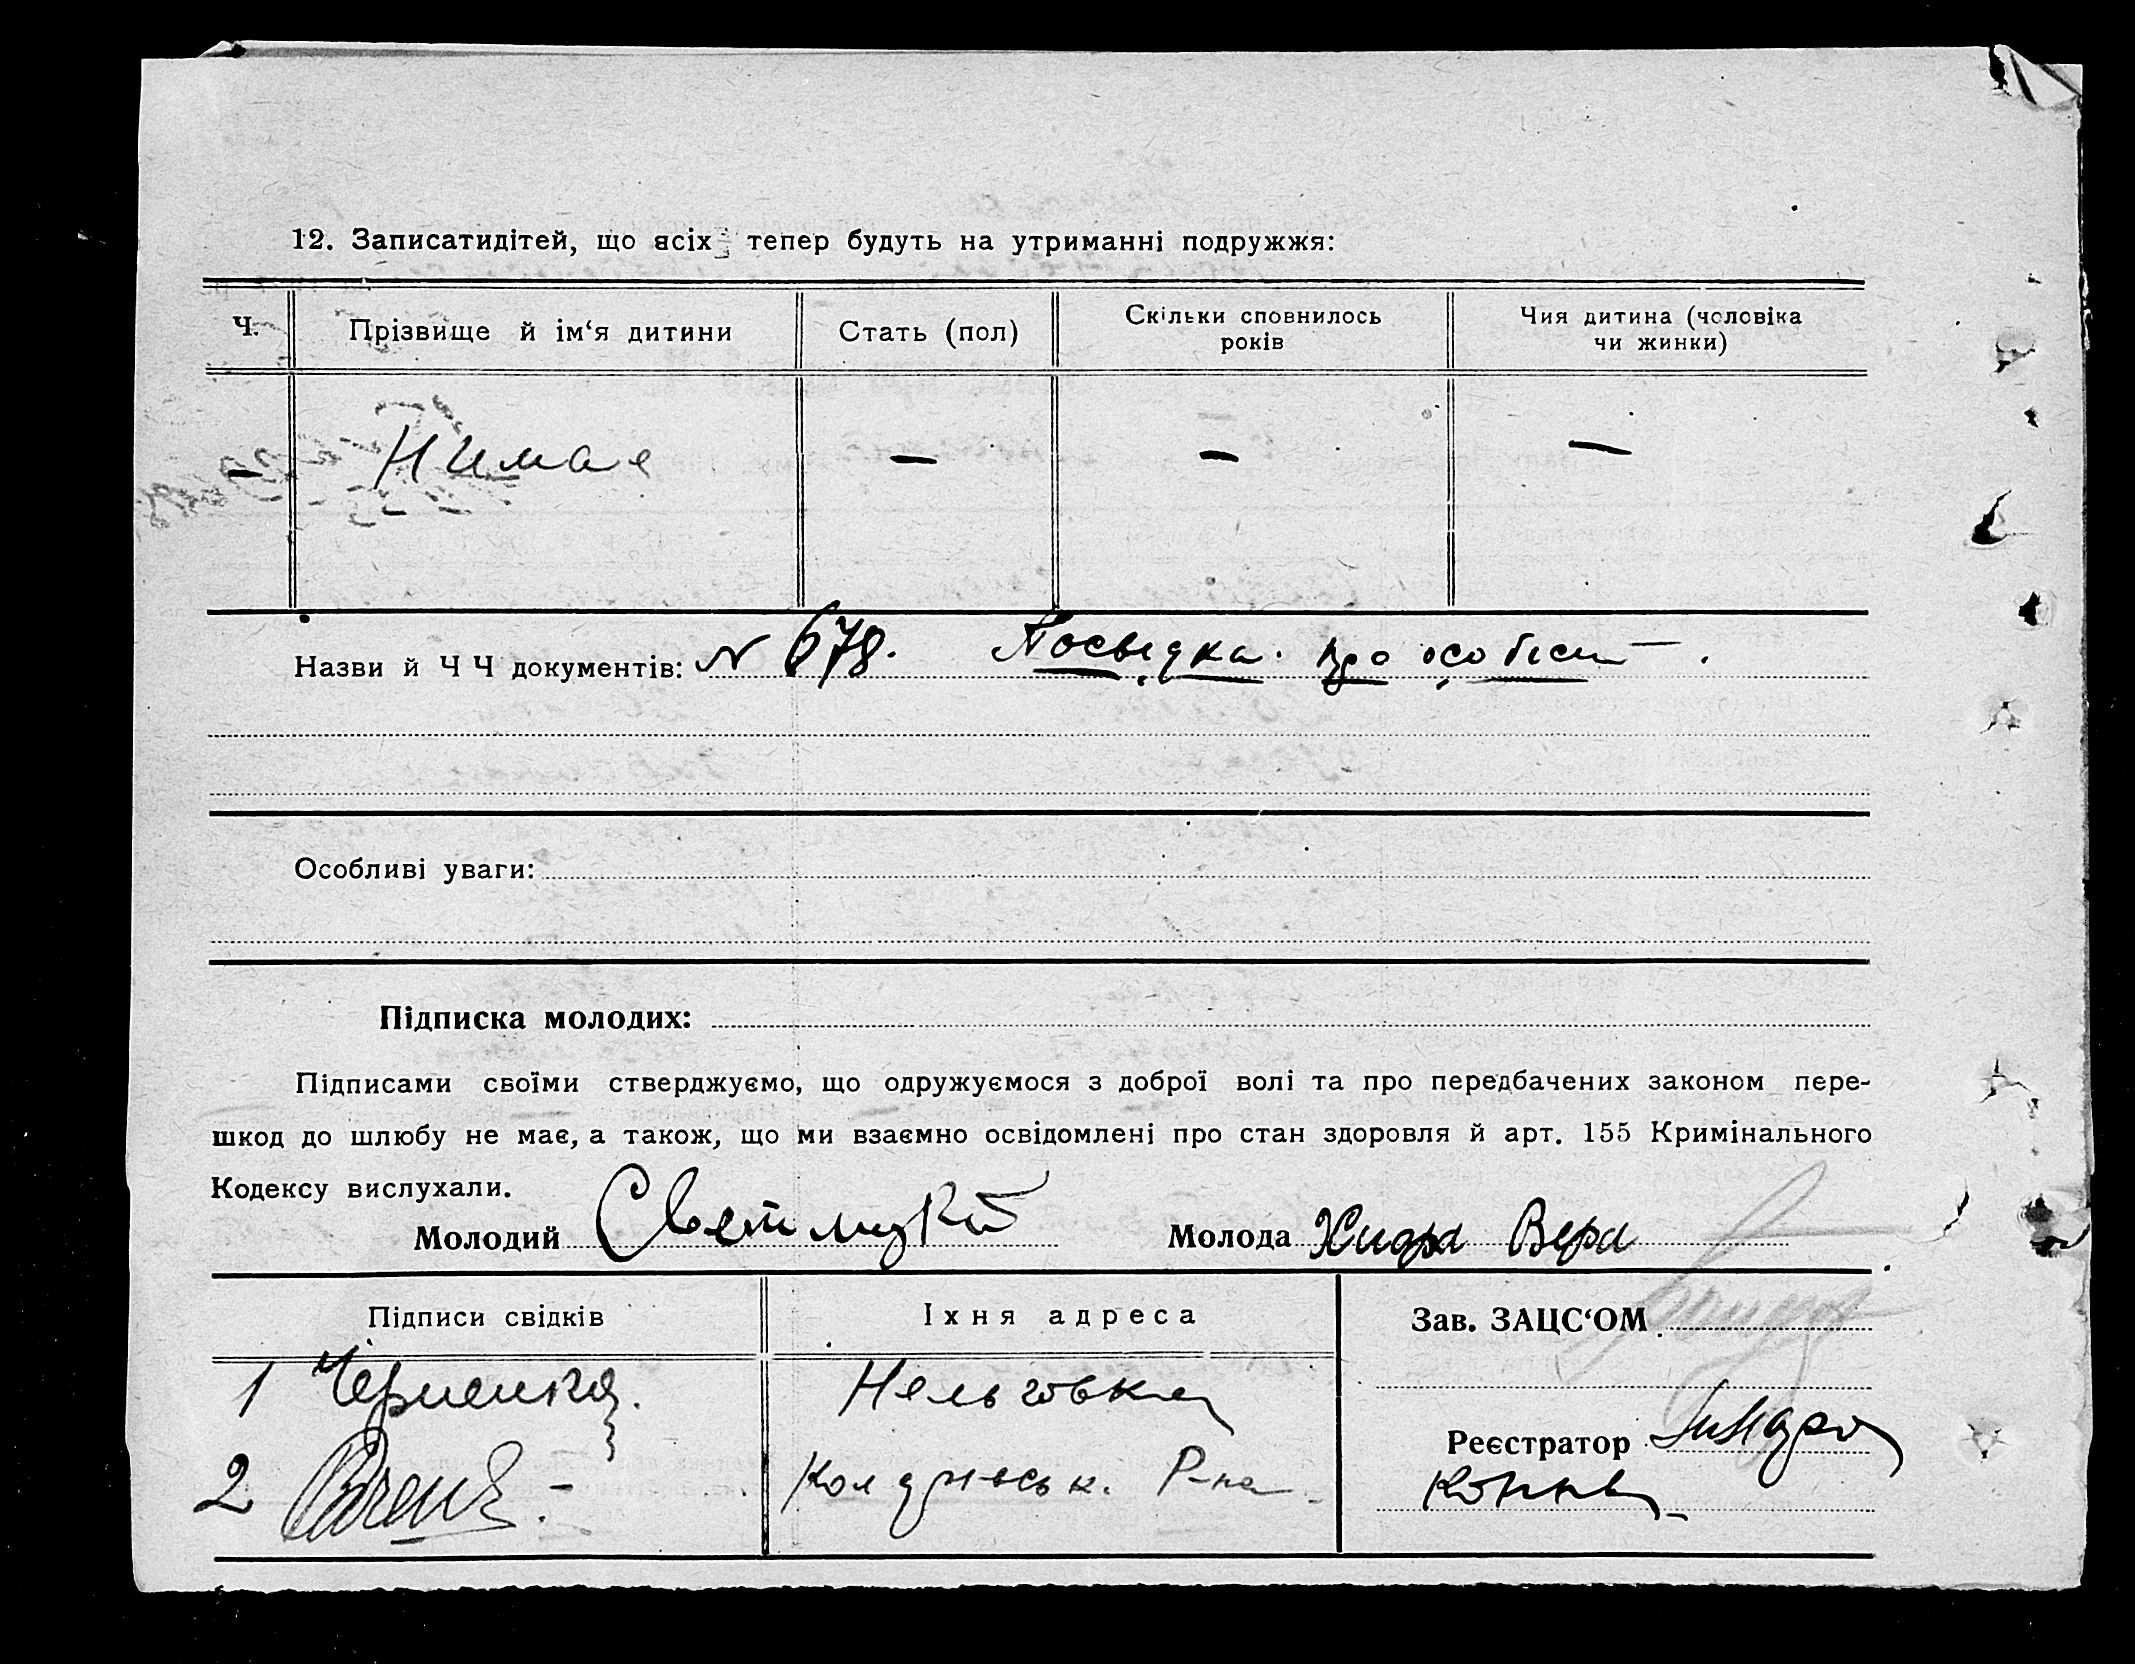 12. Записатидітей, що всіх тепер будуть на утриманні подружжя:
Ч. Прізвище й ім‘я дитини Стать (пол) Скільки сповнилось років Чия дитина (чоловіка чи жинки)
— Нимае — — —
Назви й Ч Ч документів: N 678. Посвідка про особист — .
Особливі уваги:
Підписка молодих:
Підписами своїми стверджуємо, що одружуємося з доброї волі та про передбачених законом пере-
шкод до шлюбу не має, а також, що ми взаємно освідомлені про стан здоровля й арт. 155 Кримінального
Кодексу вислухали.
Молодий Молода Вера
Підписи свідків Їхня адреса Зав. ЗАЦС‘ОМ
1
Реєстратор
2 Р-на